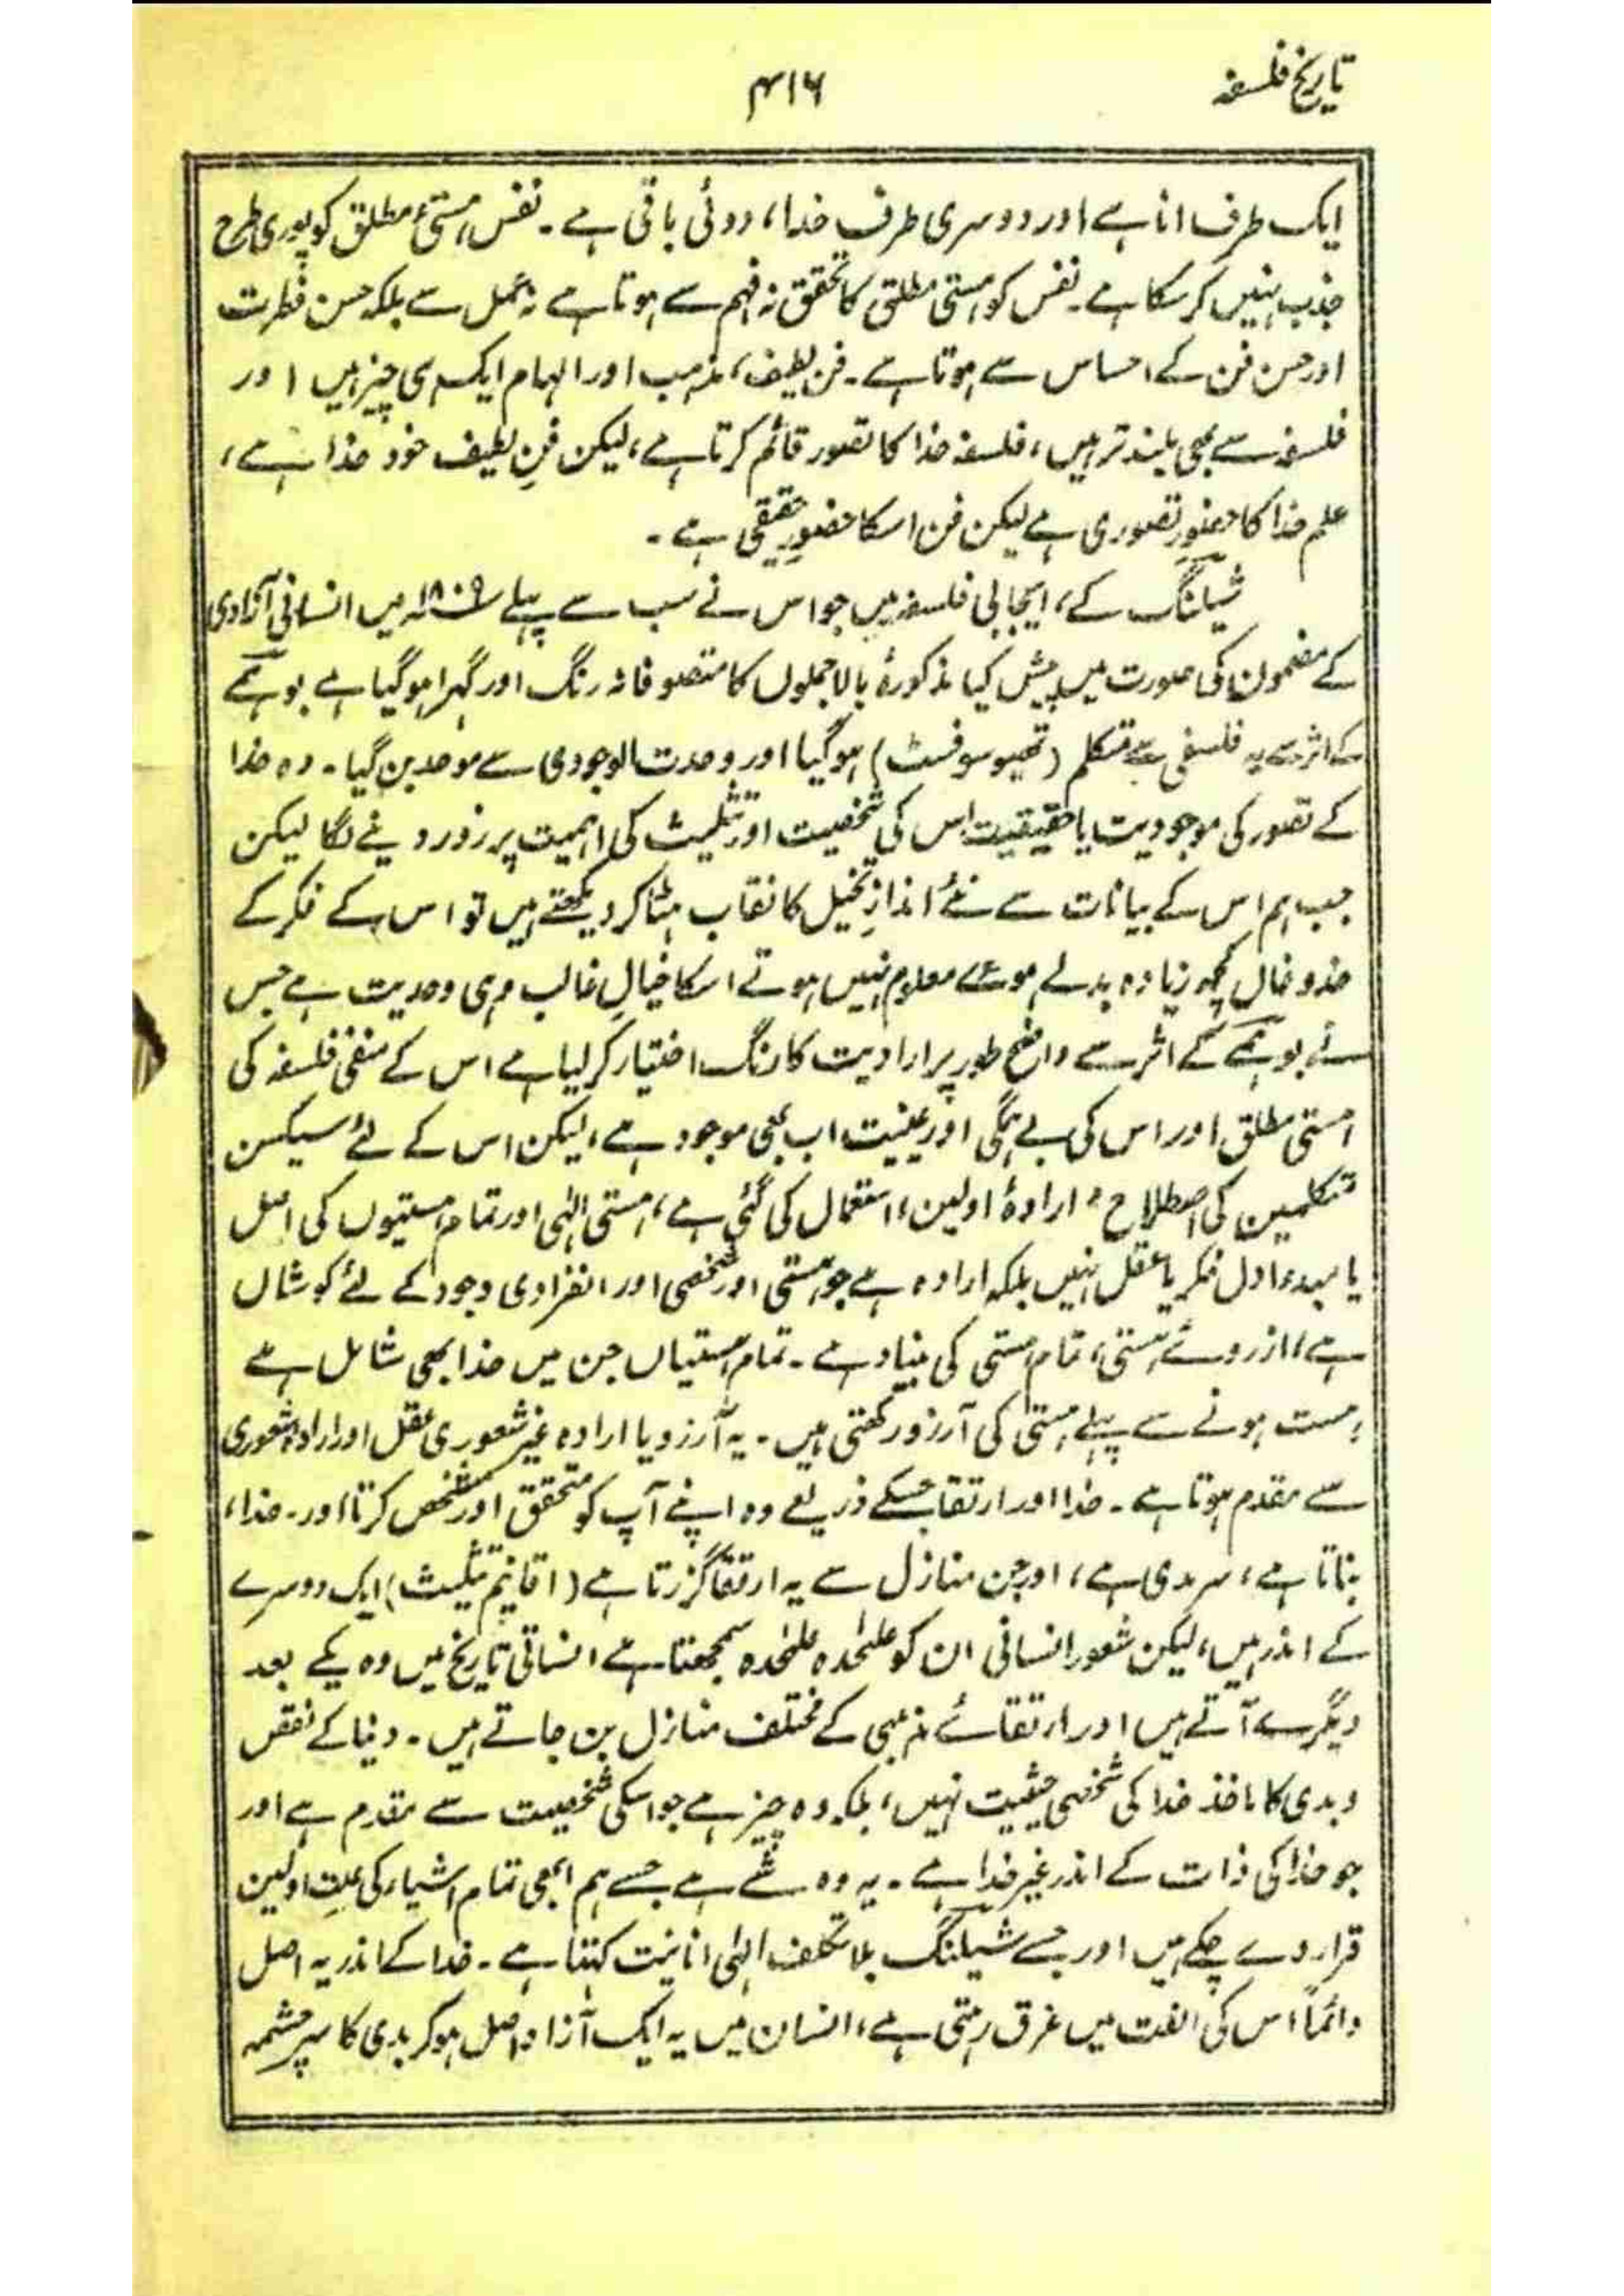 تاریخ فلسفہ
۴۱۶
ایک طرف انا ہے اور دوسری طرف خدا، دوئی باقی ہے ۔ نفس، ہستیٔ مطلق کو پوری طرح
جذب نہیں کر سکا ہے ۔ نفس کو ہستی مطلق کا تحقق نہ فہم سے ہوتا ہے نہ عمل سے بلکہ حسن فطرت
اور حسن فن کے احساس سے ہوتا ہے ۔ فن لطیف، مذہب اور الہام ایک ہی چیز ہیں اور
فلسفہ سے بھی بلند تر ہیں، فلسفہ خدا کا تصور قائم کرتا ہے، لیکن فنِ لطیف خود خدا ہے،
علم خدا کا حضورِ تصوری ہے لیکن فن اسکا حضورِ حقیقی ہے ۔
شیلنگ کے، ایجابی فلسفہ میں جو اس نے سب سے پہلے ۱۸۰۹ء میں انسانی آزادی
کے مضمون کی صورت میں پیش کیا مذکورۂ بالا جملوں کا متصوفانہ رنگ اور گہرا ہو گیا ہے بوہمے
کے اثر سے یہ فلسفی سے متکلم (تھیوسوفسٹ) ہو گیا اور وحدت الوجودی سے موحد بن گیا ۔ وہ خدا
کے تصور کی موجودیت یا حقیقیت اس کی شخصیت اور تثلیث کی اہمیت پر زور دینے لگا لیکن
جب ہم اس کے بیانات سے نئے اندازِ تخیل کا نقاب ہٹا کر دیکھتے ہیں تو اس کے فکر کے
خدو خال کچھ زیادہ بدلے ہوئے معلوم نہیں ہوتے اسکا خیالِ غالب وہی وحدیت ہے جس
نے بوہمے کے اثر سے واضح طور پر ارادیت کا رنگ اختیار کر لیا ہے اس کے منفی فلسفہ کی
ہستی مطلق اور اس کی بے ہمگی اور عینیت اب بھی موجود ہے، لیکن اس کے لئے سیکسن
متکلمین کی اصطلاح، ارادۂ اولین، استعمال کی گئی ہے، ہستی الٰہی اور تمام ہستیوں کی اصل
یا مبدء اول فکر یا عقل نہیں بلکہ ارادہ ہے جو ہستی اور شخصی اور انفرادی وجود کے لئے کوشاں
ہے، ازروئے ہستی، تمام ہستی کی بنیاد ہے ۔ تمام ہستیاں جن میں خدا بھی شامل ہے
ہست ہونے سے پہلے ہستی کی آرزو رکھتی ہیں ۔ یہ آرزو یا ارادہ غیر شعوری عقل اور ارادۂ شعوری
سے مقدم ہوتا ہے ۔ خدا اور ارتقا جسکے ذریعے وہ اپنے آپ کو متحقق اور مشخص کرتا اور ۔ خدا،
بناتا ہے، سرمدی ہے، اور جن منازل سے یہ ارتقا گزرتا ہے (اقانیم تثلیث) ایک دوسرے
کے اندر ہیں، لیکن شعور انسانی ان کو علٰحدہ علٰحدہ سمجھتا ہے انسانی تاریخ میں وہ یکے بعد
دیگرے آتے ہیں اور ارتقائے مذہبی کے مختلف منازل بن جاتے ہیں ۔ دنیا کے نقص
و بدی کا ماخذ خدا کی شخصی حیثیت نہیں، بلکہ وہ چیز ہے جو اسکی شخصیت سے مقدم ہے اور
جو خدا کی ذات کے اندر غیر خدا ہے ۔ یہ وہ شے ہے جسے ہم ابھی تمام اشیاء کی علتِ اولین
قرار دے چکے ہیں اور جسے شیلنگ بلا تکلف الٰہی انانیت کہتا ہے ۔ خدا کے اندر یہ اصل
دائماً اس کی الفت میں غرق رہتی ہے، انسان میں یہ ایک آزاد اصل ہو کر بدی کا سرچشمہ